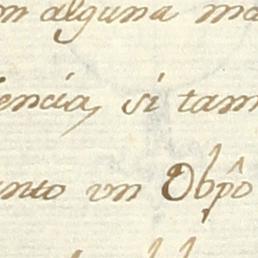 on alguna ma
encia, si tam
unto un Obpõ